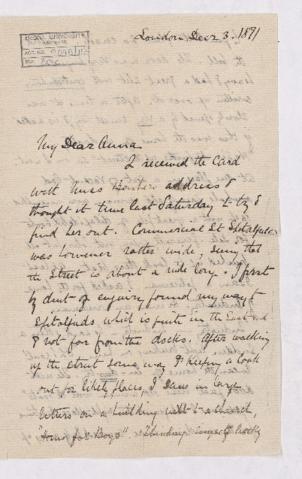 London, Decr 3. 1891
My Dear Anna
I received the Card
with Miss address &
thought it time last Saturday to try &
find her out. Commercial St Spitalfields
was however rather wide, seeing that
the street is about a mile long. I first
by dint of enquiry found my way to
Spitalfields which is quite in the East end
& not far from the docks. After walking
up the street some way & keeping a look
out for likely places I saw in large
letters on a building next to a church,
"Home for Boys"